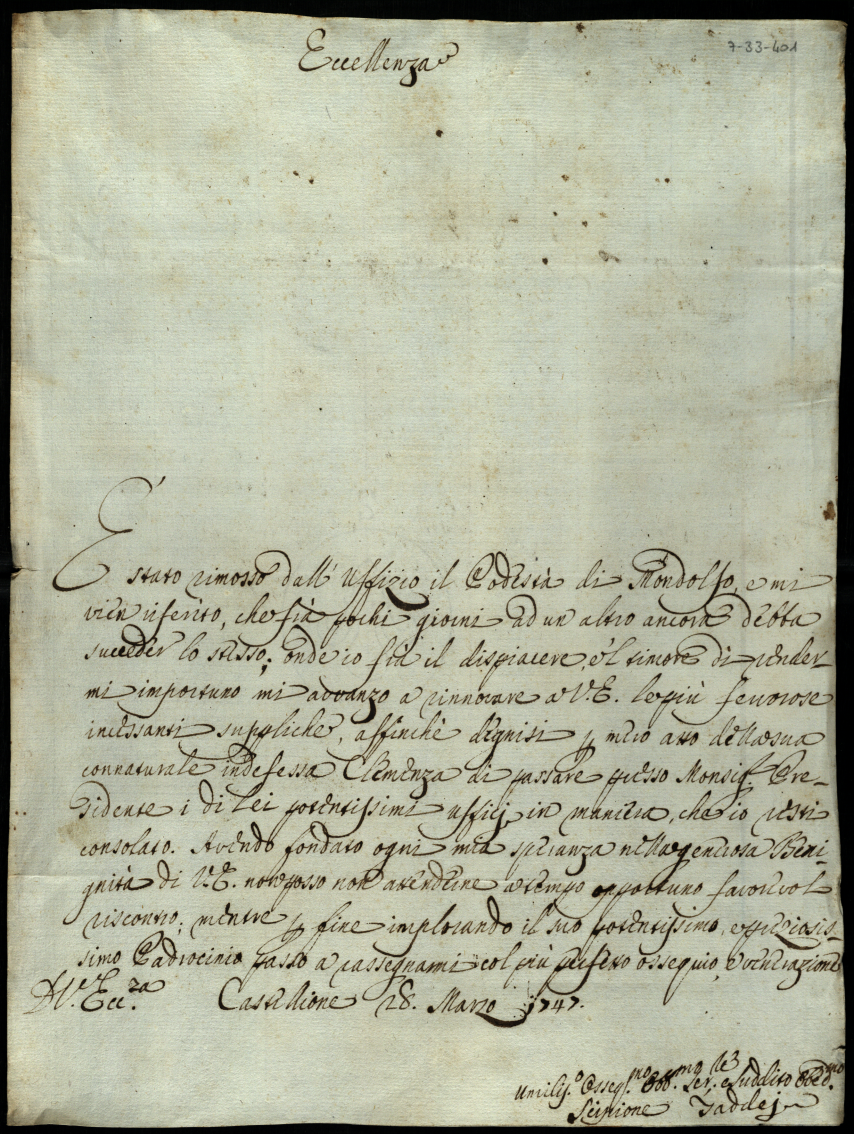 7-33-401
Eccellenza
È stato rimosso dall' Uffizio il Podestà di Mondolfo, e mi
vien riferito, che frà pochi giorni ad un' altro ancora debba
succeder lo stesso; onde io frà il dispiacere, e'l timore di render-
mi importuno mi avvanzo a rinnovare a V.E. le più fervorose
incessanti suppliche, affinchè degnisi p mero atto della sua
connaturale indefessa Clemenza di passare presso Monsig.r Pre-
sidente i di Lei potentissimi ufficj in maniera, che io resti
consolato. Avendo fondato ogni mia speranza nella generosa Beni-
gnità di V.E. non posso non attenderne a tempo opportuno favorevol
riscontro; mentre p fine implorando il suo potentissimo, e preziosis-
simo Padrocinio passo a rassegnarmi col più perfetto ossequio, e venerazione
D. V.ra Ecc.za Castellione 28. Marzo 1747.
Umiliss.o Osseq.mo Obb.mo Ser.e e Suddito Obbed.mo
Scipione Taddej